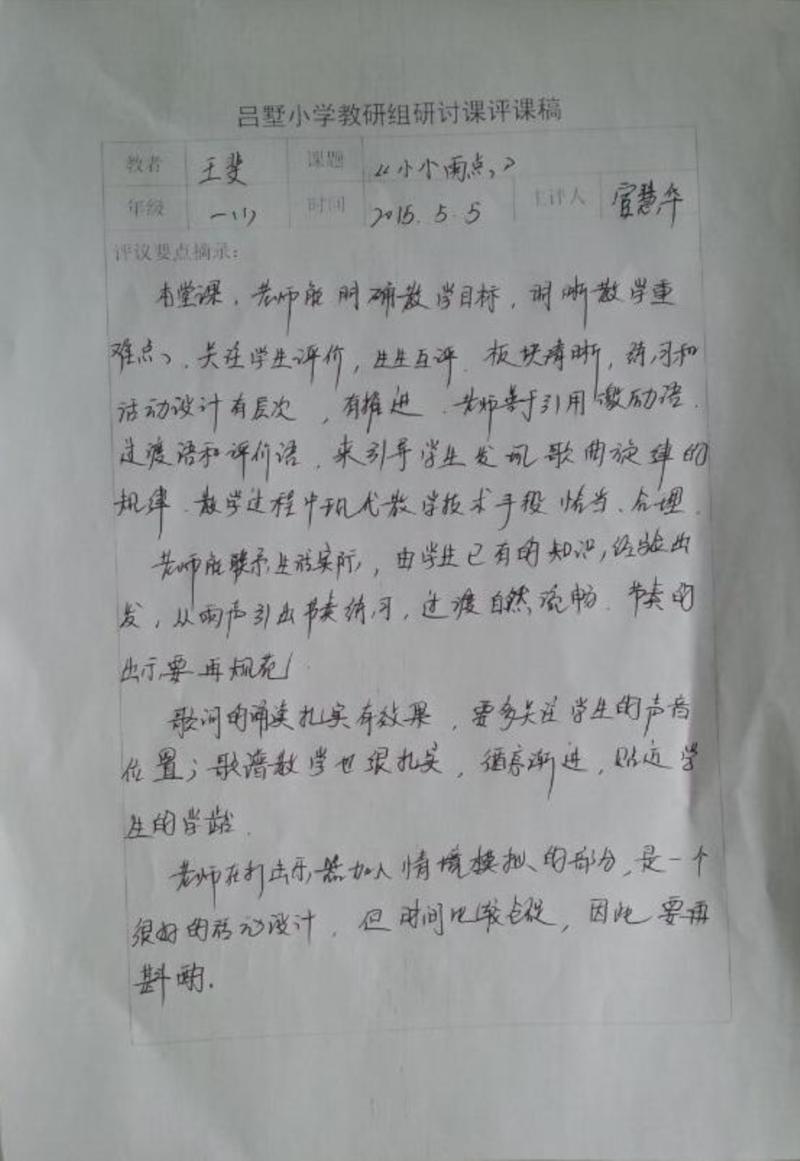 吕墅小学教研组研讨课评课稿
教者 王斐 课题 《小小雨点》
年级 一(1) 时间 2015.5.5 主评人 官慧华
评议要点摘录：
本堂课，老师能明确教学目标，明晰教学重
难点，关注学生评价，生生互评．板块清晰，练习和
活动设计有层次，有推进．老师善于引用激励语．
过渡语和评价语，来引导学生发现歌曲旋律的
规律．教学过程中现代教学技术手段恰当、合理．
老师能联系生活实际，由学生已有的知识，经验出
发，从雨声引出节奏练习，过渡自然流畅．节奏的
出示要再规范！
歌词的诵读扎实有效果，要多关注学生的声音
位置；歌谱教学也很扎实，循序渐进，贴近学
生的学龄．
老师在打击乐器加入情境模拟的部分，是一个
很好的活动设计，但时间比较仓促，因此要再
斟酌．